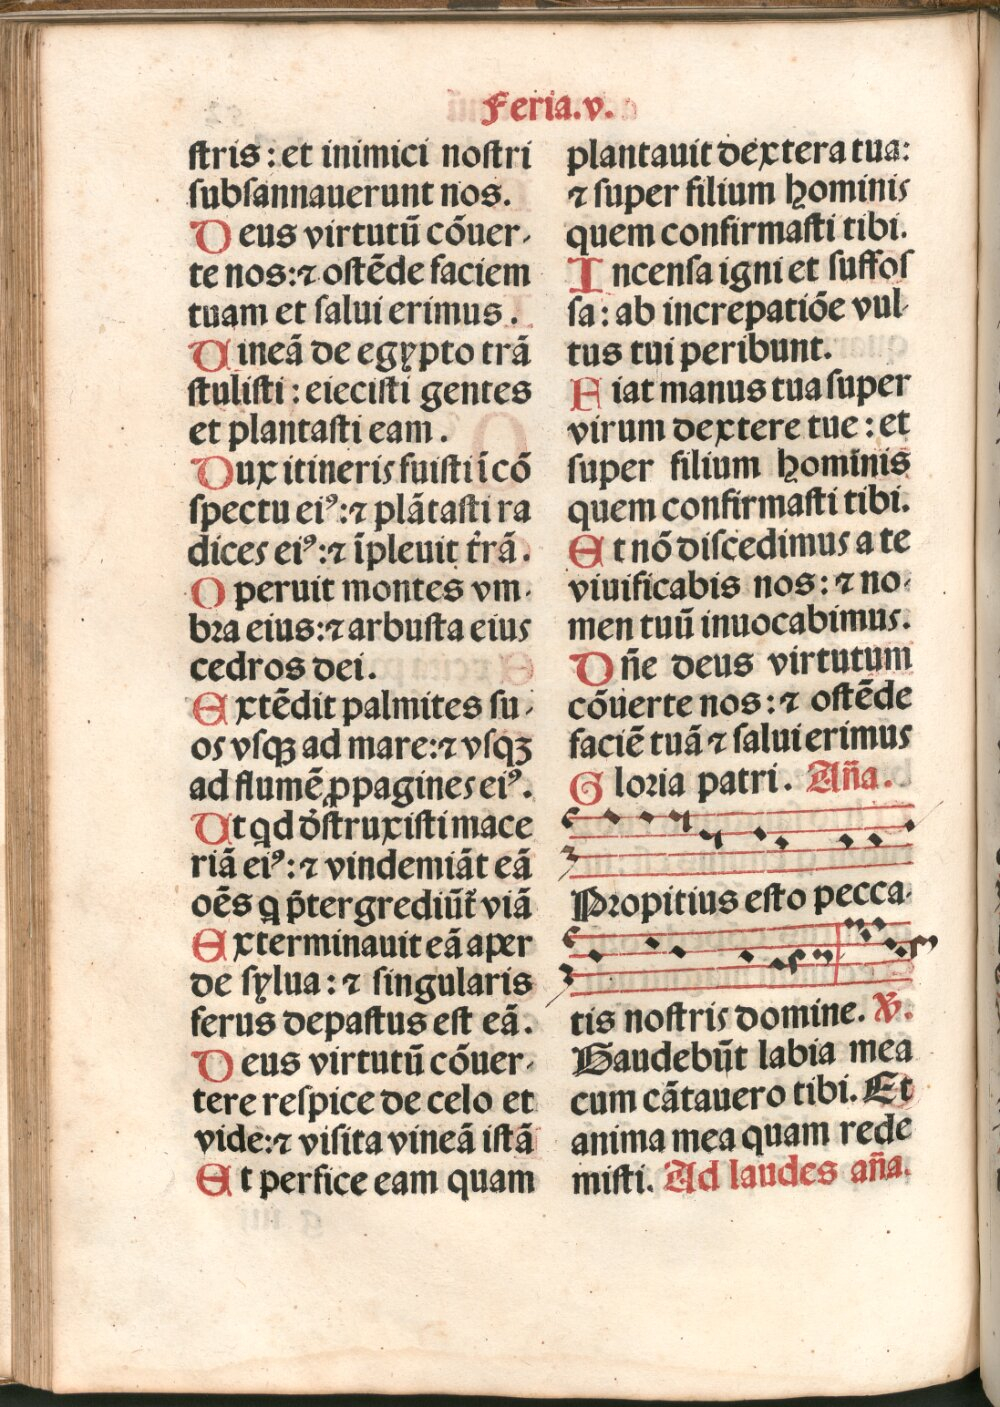 Feria.v.
stris : et inimici nostri
subsannauerunt nos.
Deus virtutū cōuer-
te nos:⁊ ostēde faciem
tuam et salui erimus.
Uineā de egypto trā
stulisti : eiecisti gentes
et plantasti eam.
Dux itineris fuisti ī cō
spectu eiꝰ:⁊ plātasti ra
dices eiꝰ:⁊ īpleuit t̄rā.
Operuit montes vm-
bra eius:⁊ arbusta eius
cedros dei.
Extēdit palmites su-
os vsqꝫ ad mare:⁊ vsqꝫ
ad flumē ꝓpagines eiꝰ.
Ut qd d̄struxisti mace
riā eiꝰ:⁊ vindemiāt eā
oēs q p̄tergrediūt̄ viā
Exterminauit eā aper
de sylua:⁊ singularis
ferus depastus est eā.
Deus virtutū cōuer-
tere respice de celo et
vide:⁊ visita vineā istā
Et perfice eam quam
plantauit dextera tua:
⁊ super filium hominis
quem confirmasti tibi.
Incensa igni et suffos
sa : ab increpatiōe vul-
tus tui peribunt.
Fiat manus tua super
virum dextere tue : et
super filium hominis
quem confirmasti tibi.
Et nō discedimus a te
viuificabis nos:⁊ no-
men tuū inuocabimus.
Dn̄e deus virtutum
cōuerte nos:⁊ ostēde
faciē tuā ⁊ salui erimus
Gloria patri. An̄a.
Propitius esto pecca-
tis nostris domine. ℣.
Gaudebūt labia mea
cum cātauero tibi. Et
anima mea quam rede
misti. Ad laudes an̄a.